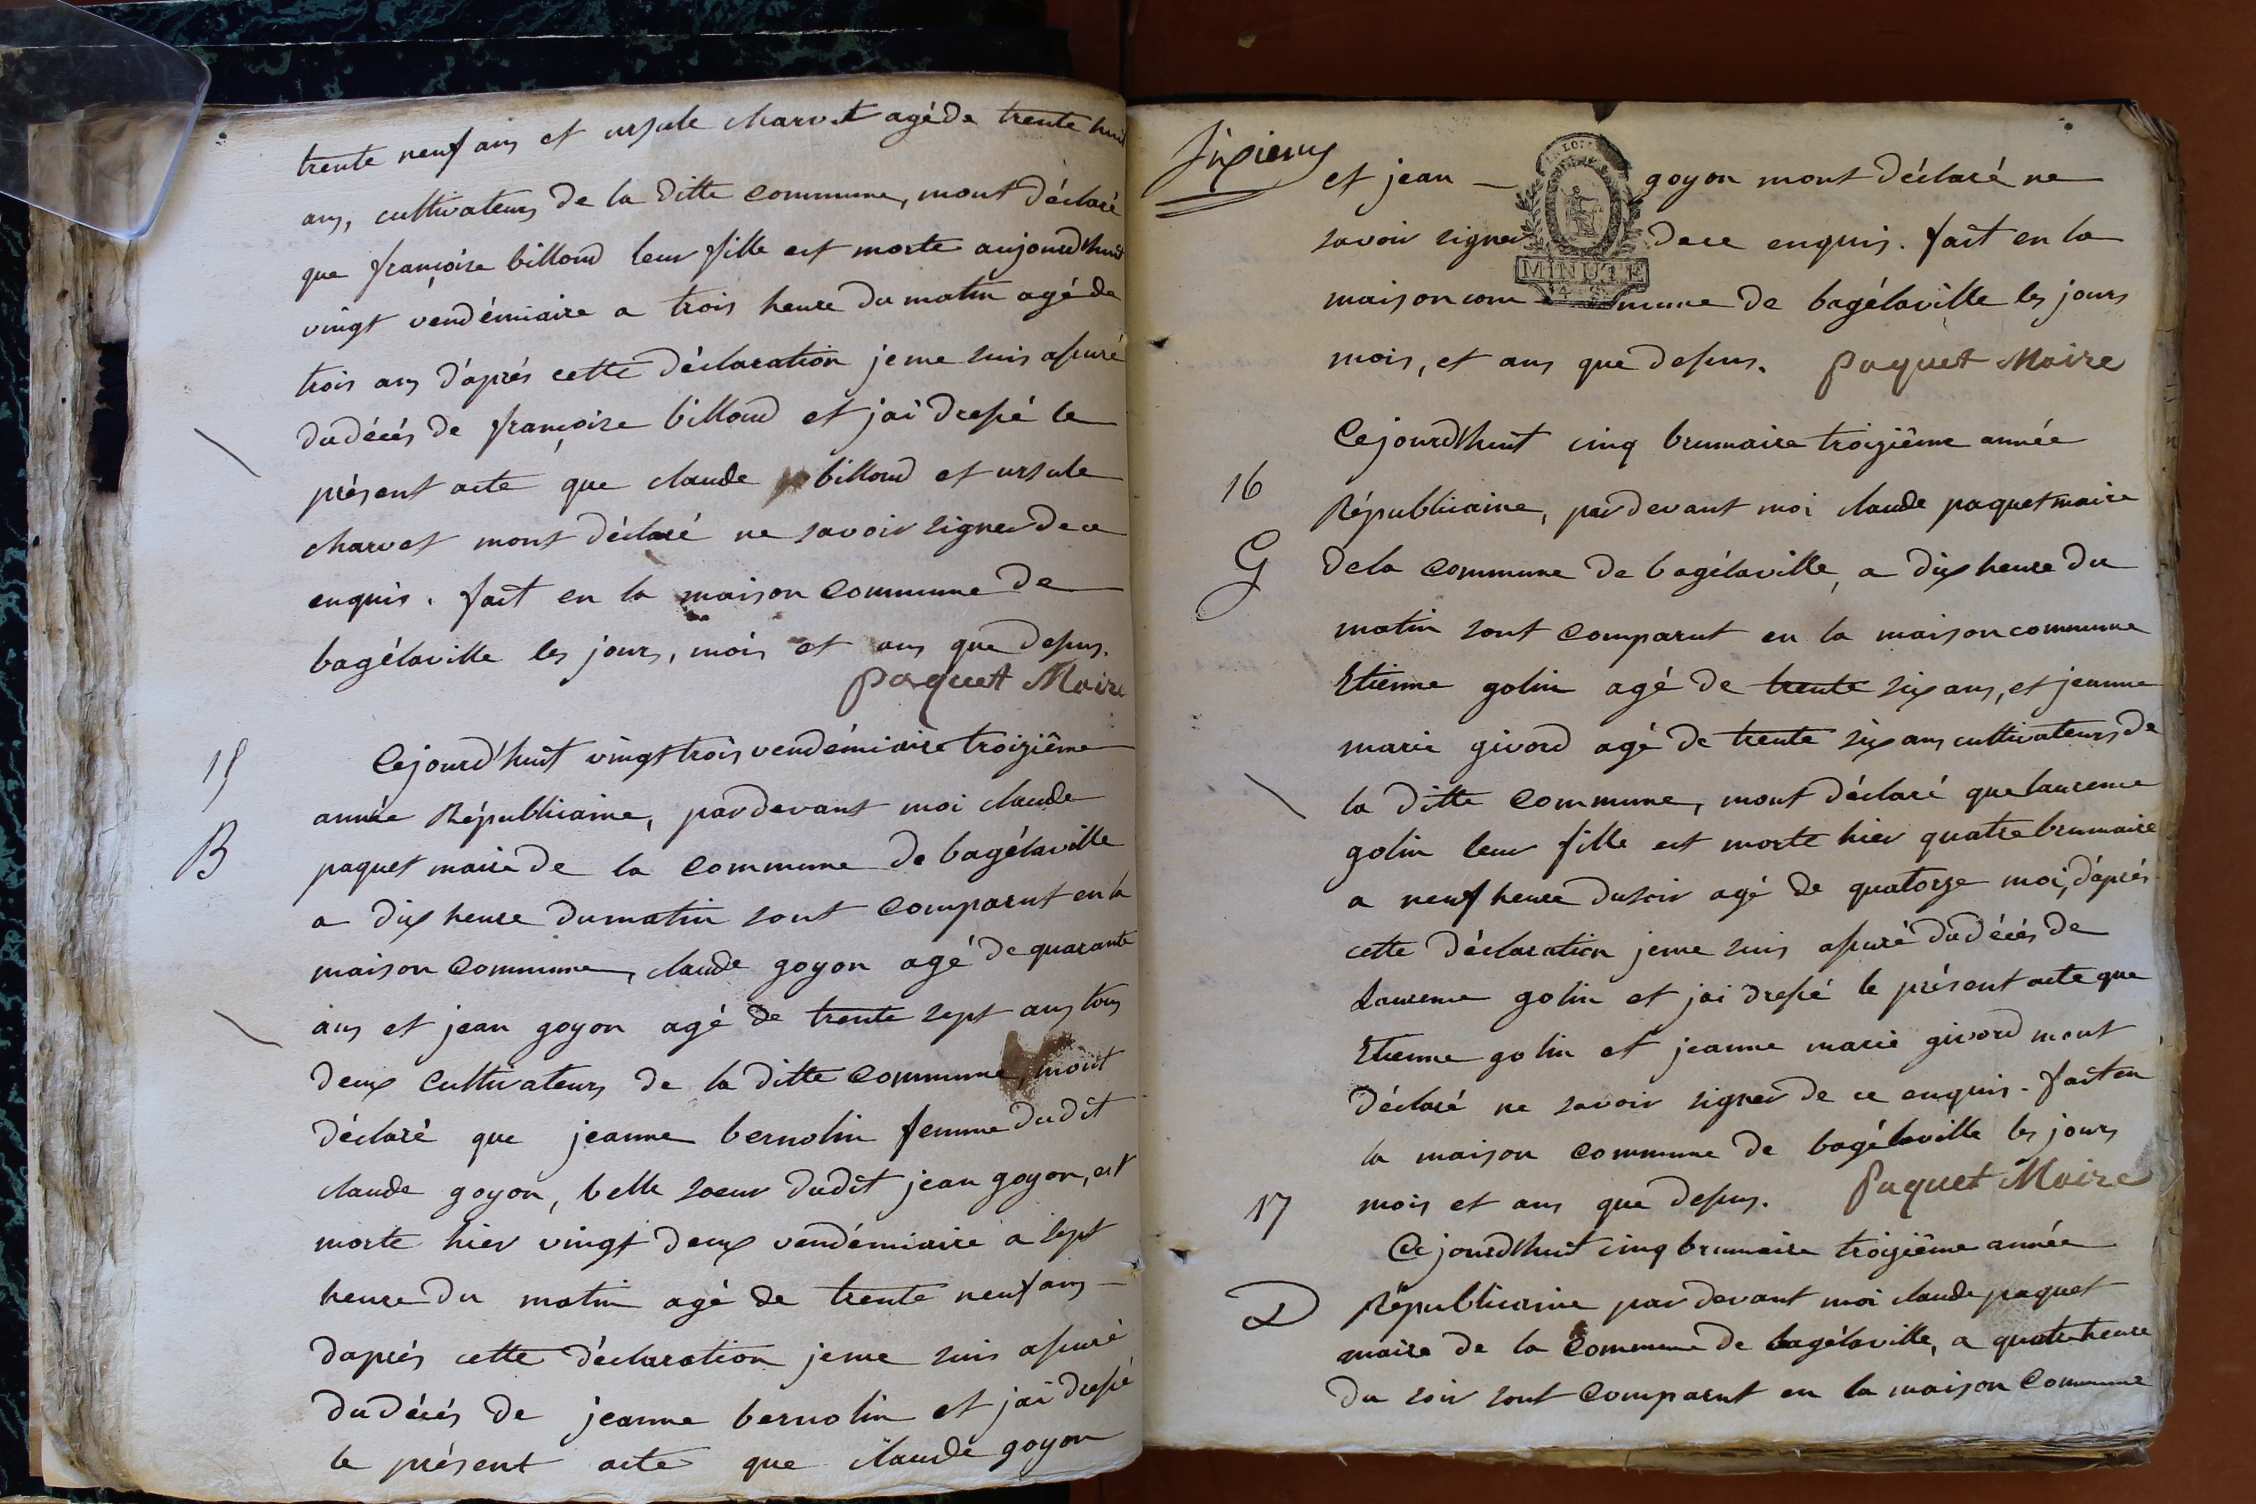 trente neuf ans et ursule charvet agé de trente huit
ans, cultivateurs de la ditte commune, mont déclaré
que françoise billoud leur fille est morte aujourd'huit
vingt vendémiaire a trois heure du matin agé de
trois ans d'aprés cette déclaration je me suis assuré
du décés de françoise billoud et jai dressé le
présent acte que claude billoud et ursule
charvet mont déclaré ne savoir signer de ce
enquis. fait en la maison commune de
bagélaville les jours, mois et ans que dessus.
paquet Maire
15
Cejourd'huit vingt trois vendémiaire troiziême
année Républicaine, pardevant moi claude
B
paquet maire de la commune de bagélaville
a dix heure du matin sont comparut en la
maison commune, claude goyon agé de quarante
ans et jean goyon agé de trente sept ans tous
deux cultivateurs de la ditte commune, mont
déclaré que jeanne bernolin femme dudit
claude goyon, belle soeur dudit jean goyon, est
morte hier vingt deux vendémiaire a sept
heure du matin agé de trente neuf ans
daprés cette déclaration je me suis assuré
du décés de jeanne bernolin et jai dressé
le présent acte que claude goyon
Sixieme
et jean goyon mont déclaré ne
savoir signer dece enquis. fait en la
MINUTE
maison com mune de bagélaville les jours
mois, et ans que dessus. paquet Maire
Cejourd'huit cinq brumaire troiziême année
16
Républicaine, par devant moi claude paquet maire
G
dela commune de bagélaville, a dix heure du
matin sont comparut en la maison commune
Etienne golin agé de trente six ans, et jeanne
marie givord agé de trente six ans cultivateurs de
la ditte commune, mont déclaré que laurence
golin leur fille est morte hier quatre brumaire
a neuf heure du soir agé de quatorze moi, d'aprés
cette déclaration je me suis assuré du décés de
Laurence golin et jai dressé le présent acte que
Etienne golin et jeanne marie givord mont
déclaré ne savoir signer de ce enquis. fait en
la maison commune de bagélaville les jours
mois et ans que dessus. Paquet Maire
17
Ce jourd'huit cinq brumaire troiziême année
D
Républicaine par devant moi claude paquet
maire de la commune de bagélaville, a quatre heure
du soir sont comparut en la maison commune